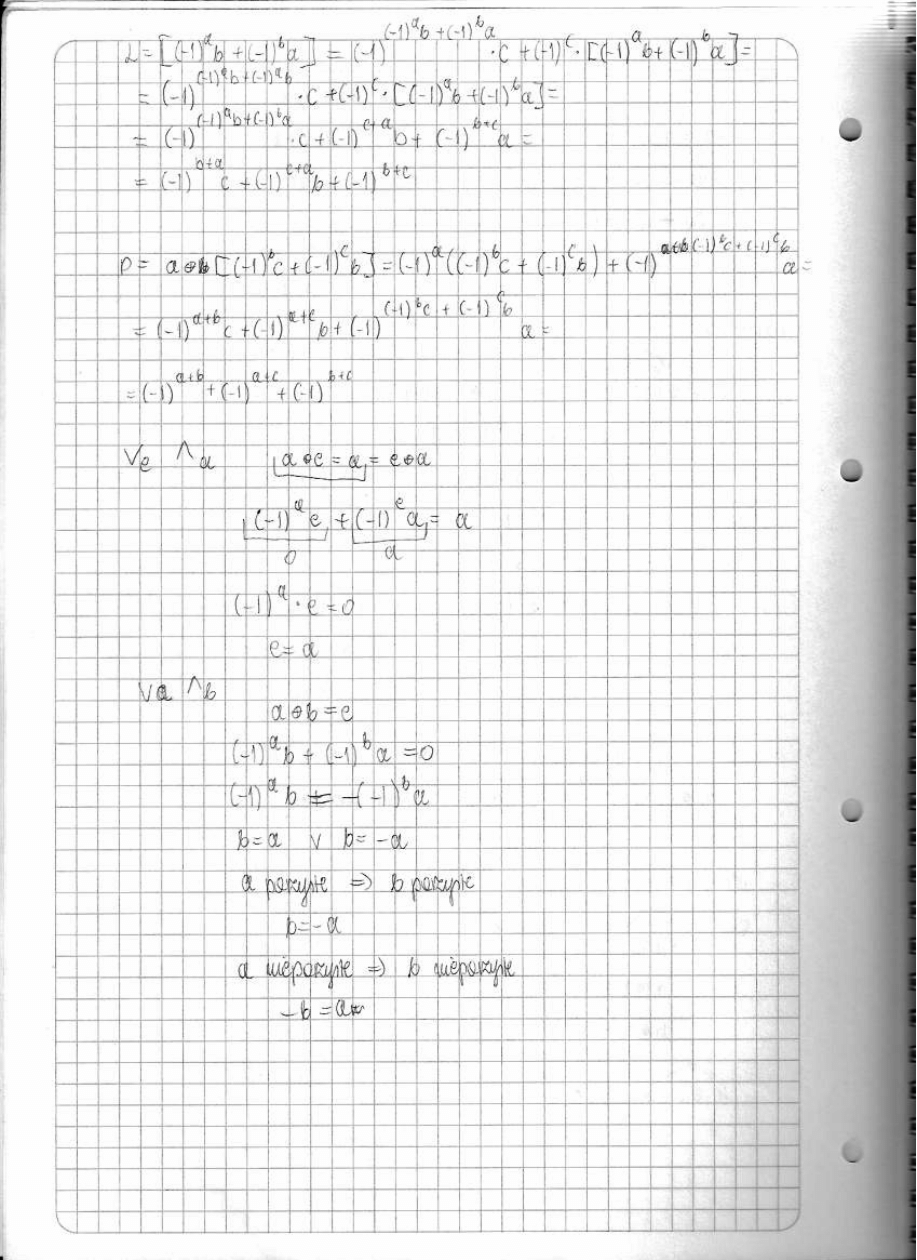 L = [(-1)^a b + (-1)^b a] = (-1)^{(-1)^a b + (-1)^b a} · c + (-1)^c · [(-1)^a b + (-1)^b a] =
= (-1)^{(-1)^a b + (-1)^a b} · c + (-1)^c · [(-1)^a b + (-1)^b a] =
= (-1)^{(-1)^a b + (-1)^b a} · c + (-1)^{c+a} b + (-1)^{b+c} a =
= (-1)^{b+a} c + (-1)^{c+a} b + (-1)^{b+c}
P = a ⊕ [(-1)^b c + (-1)^c b] = (-1)^a ((-1)^b c + (-1)^c b) + (-1)^{(-1)^b c + (-1)^c b} a =
= (-1)^{a+b} c + (-1)^{a+c} b + (-1)^{(-1)^b c + (-1)^c b} a =
= (-1)^{a+b} + (-1)^{a+c} + (-1)^{b+c}
∨e ∧a a ⊕ e = a = e ⊕ a
(-1)^a e + (-1)^e a = a
0 a
(-1)^a · e = 0
e = a
∨a ∧b
a ⊕ b = e
(-1)^a b + (-1)^b a = 0
(-1)^a b = -(-1)^b a
b = a ∨ b = -a
a parzyste ⇒ b parzyste
b = -a
a nieparzyste ⇒ b nieparzyste
-b = a